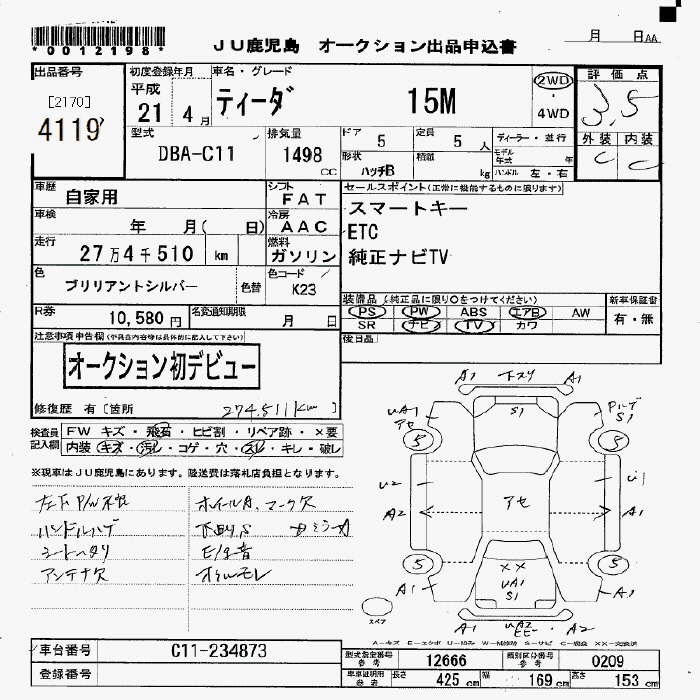 *0012198*
JU鹿児島 オークション出品申込書
月 日AA
出品番号
[2170]
4119
初度登録年月
平成
21 4月
車名・グレード
ティーダ 15M
2WD
・
4WD
評価点
3.5
外装 内装
C C
型式
DBA-C11
排気量
1498
CC
ドア 5
定員 5人
形状 ハッチB
積載 kg
ディーラー・並行
モデル年式 年
ハンドル 左・右
車歴 自家用
シフト FAT
セールスポイント(正常に機能するものに限ります)
スマートキー
ETC
純正ナビTV
車検 年 月( 日)
冷房 AAC
走行 27万4千510 km
燃料 ガソリン
色 ブリリアントシルバー 色替
色コード K23
R券 10,580円
名変通知期限 月 日
装備品(純正品に限り○をつけてください)
PS PW ABS エアB AW
SR ナビ TV カワ
新車保証書
有・無
後日品
注意事項申告欄(不具合内容等は具体的に記入して下さい)
オークション初デビュー
修復歴 有[箇所 274,511km]
検査員記入欄
FW キズ・飛石・ヒビ割・リペア跡・×要
内装・キズ・汚レ・コゲ・穴・スレ・キレ・破レ
※現車はJU鹿児島にあります。陸送費は落札店負担となります。
ハンドルハゲ
シートヘタリ
アンテナ欠
ホイールA、マーク欠
下回りS
E/G音
オイルモレ
A1 下スリ A1
S1
UA1
アセ
S1
5 5
U2 U1
A2 アセ A1
5 5
××
UA1
S1
A1 A1
A1 UA2 A2
スペア
A－キズ E－エクボ U－凹み W－補修跡 S－サビ C－腐食 XX－交換済
車台番号 C11-234873
登録番号
型式指定番号 参考 12666
類別区分番号 参考 0209
車車証明用 参考 長さ 425cm 幅 169cm 高さ 153cm